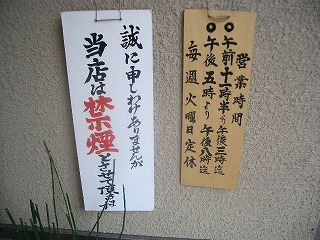 誠に申しわけありませんが
当店は禁煙とさせて頂きます
営業時間
午前十一時半より午後三時迄
午後五時より午後八時迄
毎週火曜日定休